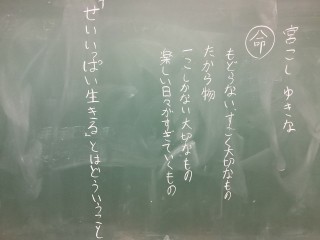 宮こし ゆきな
命
もどらない、すごく大切なもの
たから物
一こしかない大切なもの
楽しい日々がすぎていくもの
「せいいっぱい生きる」とはどういうこと